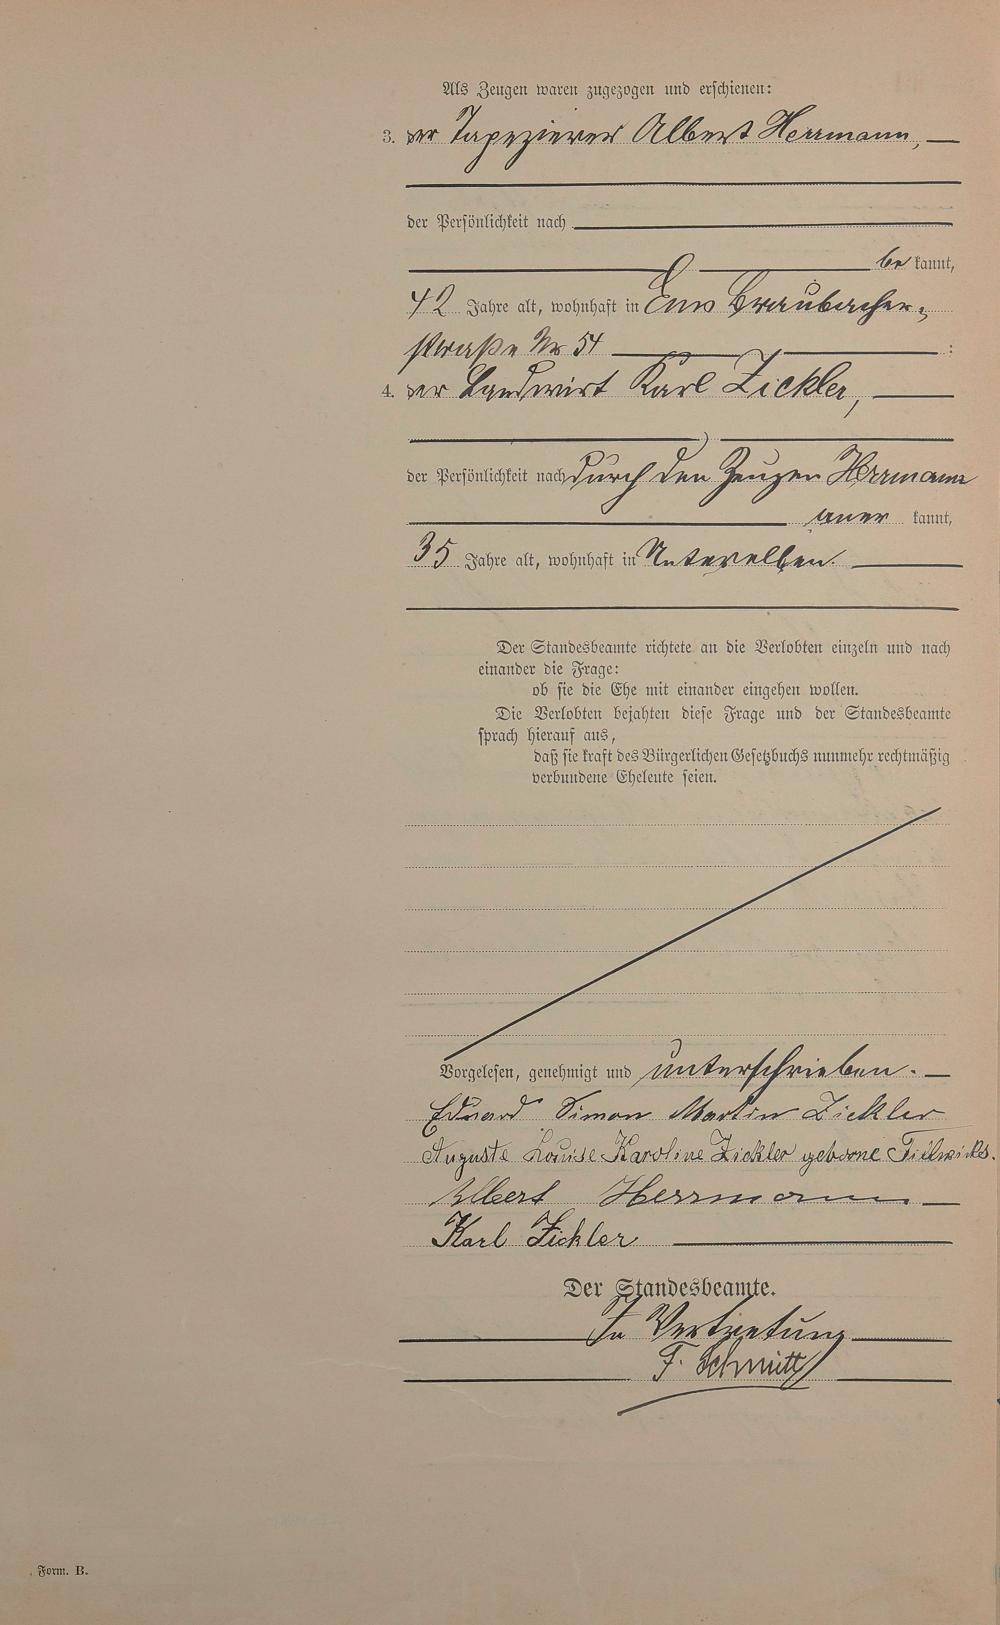 Als Zeugen waren zugezogen und erschienen:
3. der Tapezierer Albert Herrmann,
der Persönlichkeit nach
be kannt,
42 Jahre alt, wohnhaft in Ems Braubacher-
straße Nr 54 :
4. der Landwirt Karl Zickler,
der Persönlichkeit nach durch den Zeugen Herrmann
aner kannt,
35 Jahre alt, wohnhaft in
Der Standesbeamte richtete an die Verlobten einzeln und nach
einander die Frage:
ob sie die Ehe mit einander eingehen wollen.
Die Verlobten bejahten diese Frage und der Standesbeamte
sprach hierauf aus,
daß sie kraft des Bürgerlichen Gesetzbuchs nunmehr rechtmäßig
verbundene Eheleute seien.
Vorgelesen, genehmigt und unterschrieben.
Eduard Simon Martin Zickler
Auguste Louise Karoline Zickler geborne
Albert Herrmann
Karl Zickler
Der Standesbeamte.
In Vertretung
F. Schmitt
Form. B.